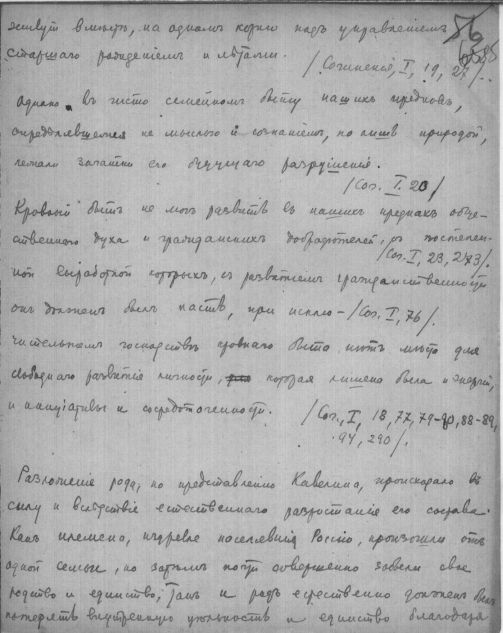 живут вместѣ, на одномъ корню подъ управленіемъ
старшаго рожденіемъ и лѣтами.
/Сочиненія, I, 19, 27/.
Однако въ чисто семейномъ быту нашихъ предковъ,
опредѣлявшемся не мыслью и сознаніемъ, но лишь природой,
лежали зачатки его будущаго разрушенія.
/Соч. I. 20/
Кровный бытъ не могъ развить въ нашихъ предкахъ обще-
ственнаго духа и гражданскихъ добродѣтелей, съ постепен-
/Соч. I, 23, 243/.
ной выработкой которыхъ, съ развитіемъ гражданственности
онъ долженъ былъ пасть, при исклю- /Соч. I, 76/.
чительномъ господствѣ кровнаго быта нѣтъ мѣста для
свободнаго развитія личности, которая лишена была и энергіи,
и иниціативы и сосредоточенности. /Соч., I, 18, 77, 79-80, 88-89,
94, 290/.
Разложеніе рода, по представленію Кавелина, происходило въ
силу и вслѣдствіе естественнаго разростанія его состава.
Какъ племена, издревле поселившія Россію, произошли отъ
одной семьи, но затѣмъ почти совершенно забыли свое
родство и единство, такъ и родъ естественно долженъ былъ
потерять внутреннюю цѣльность и единство благодаря